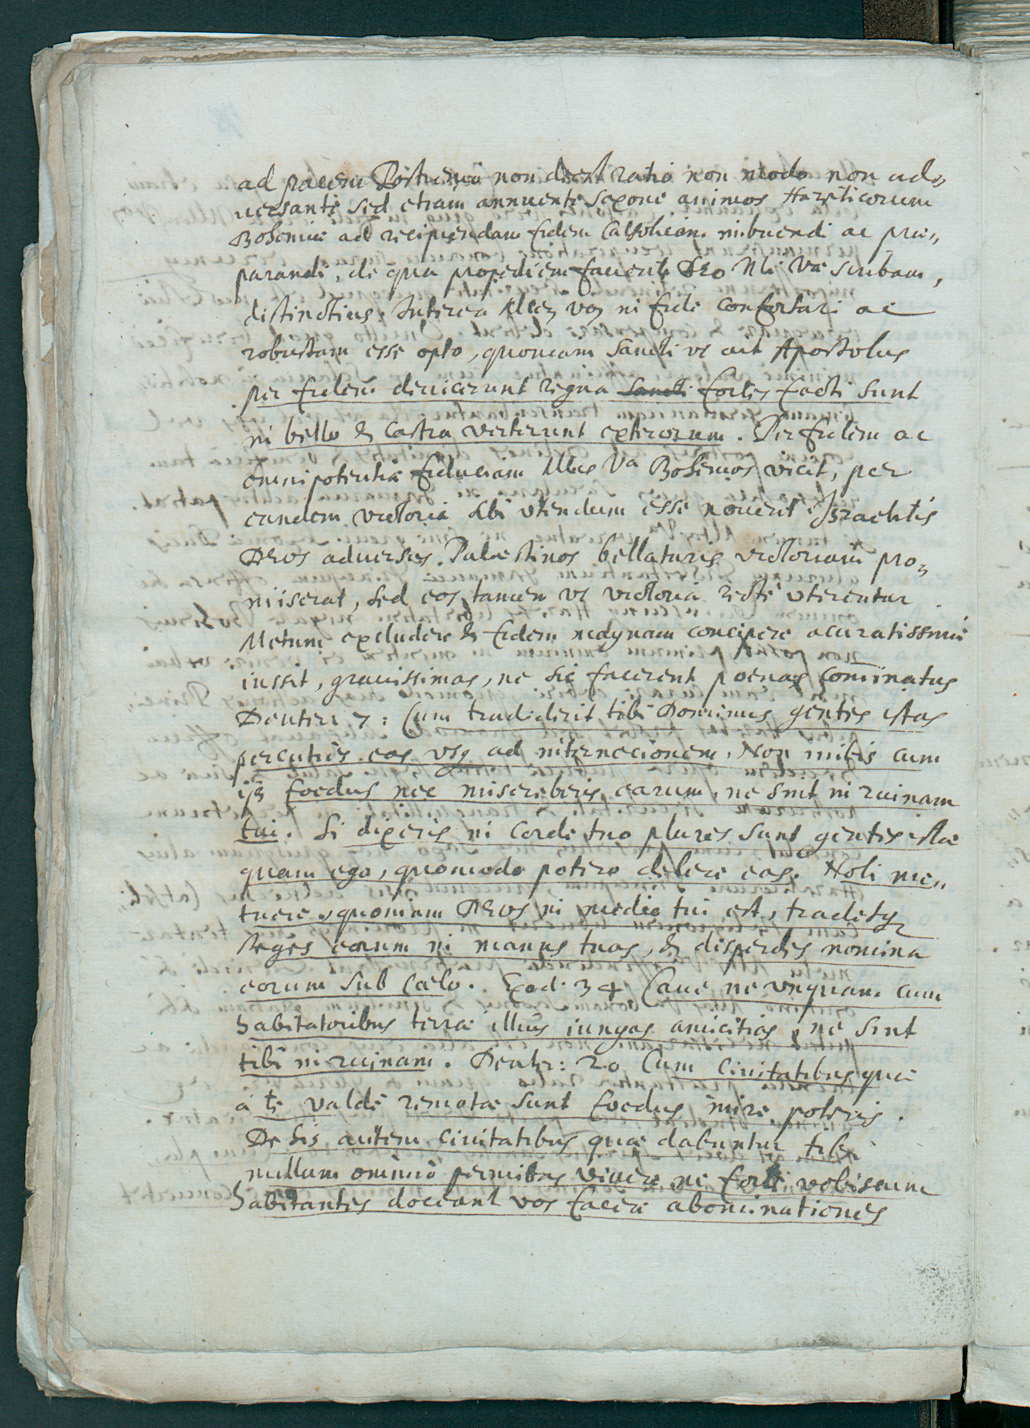 ad pacem Postremò non deest ratio non modo non ad-
uersante sed etiam annuente Saxone animos Hæreticorum
Bohemiæ ad recipiendam fidem Catholicam imbuendi ac præ-
parandi, de qua propediem fauente Deo Mti Væ scribam,
distinctius. Interea Mtem Vam in fide confortari ac
robustam esse opto, quoniam Sancti vt ait Apostolus
per fidem deuicerunt regna Sancti fortes facti sunt
in bello & Castra verterunt exterorum. Per fidem ac
omnipotentiæ fiduciam Mtas Va Bohemos vicit, per
eandem victoria sibi vtendum esse nouerit. Israelitis
DEVS aduersus Palæstinos bellaturis victoriam pro-
miserat, sed eos tamen vt victoria rectè vterentur
Metum excludere & fidem magnam concipere accuratissimè
iussit, grauissimas, ne sic facerent poenas Cominatus
Deuter: 7: Cum tradiderit tibi Dominus gentes istas
percuties eas vsq ad internecionem. Non inibis cum
ijs foedus nec misereberis earum, ne sint in ruinam
tui. Si dixeris in Corde tuo plures sunt gentes istæ
quam ego, quomodo potero delere eas. Noli me-
tuere, quoniam DEVS in medio tui est, tradetq
Reges eorum in manus tuas, & disperdes nomina
eorum sub Cælo. Exod: 34 Caue ne vnquam cum
habitatoribus terræ illius iungas amicitias, ne sint
tibi in ruinam. Deuter: 20 Cum Ciuitatibus quæ
à te valdè remotæ sunt foedus inire poteris.
De his autem Ciuitatibus quæ dabuntur tibi
nullum omninò permittas viuere ne fortè vobiscum
habitantes doceant vos facere abominationes